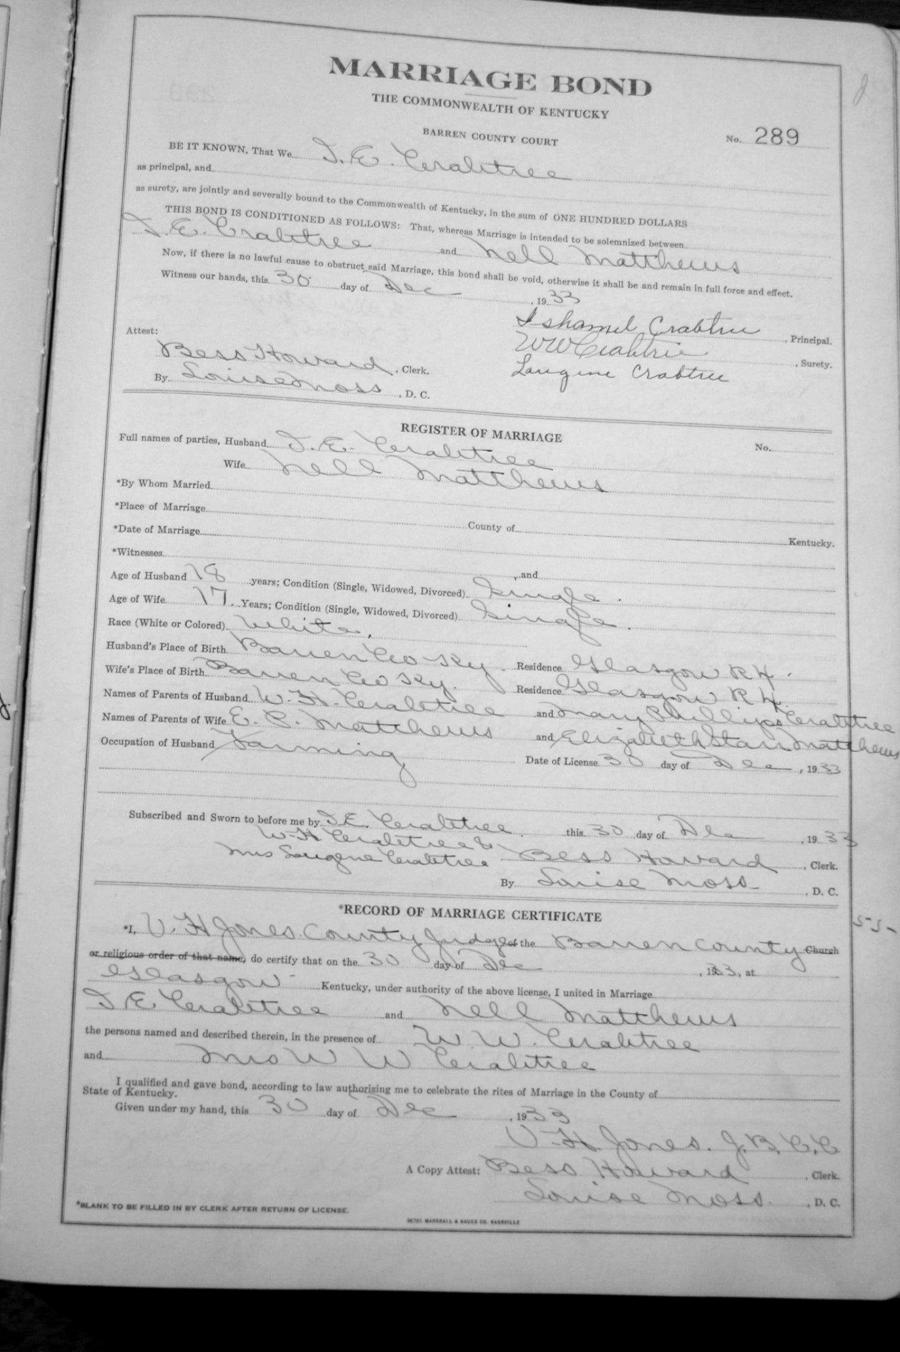 MARRIAGE BOND
THE COMMONWEALTH OF KENTUCKY
BARREN COUNTY COURT
No. 289
BE IT KNOWN, That We I. E. Crabtree
as principal, and
as surety, are jointly and severally bound to the Commonwealth of Kentucky, in the sum of ONE HUNDRED DOLLARS
THIS BOND IS CONDITIONED AS FOLLOWS: That, whereas Marriage is intended to be solemnized between
I. E. Crabtree and Nell Matthews
Now, if there is no lawful cause to obstruct said Marriage, this bond shall be void, otherwise it shall be and remain in full force and effect.
Witness our hands, this 30 day of Dec, 1933
Ishamel Crabtree, Principal.
Attest: W W Crabtree, Surety.
Bess Howard, Clerk. Laugene Crabtree
By Louise Moss, D. C.
REGISTER OF MARRIAGE
Full names of parties, Husband I. E. Crabtree No.
Wife Nell Matthews
*By Whom Married
*Place of Marriage County of Kentucky.
*Date of Marriage
*Witnesses , and
Age of Husband 18 years; Condition (Single, Widowed, Divorced) Single.
Age of Wife 17. Years; Condition (Single, Widowed, Divorced) Single.
Race (White or Colored) White,
Husband's Place of Birth Barren Co Ky. Residence Glasgow R4.
Wife's Place of Birth Barren Co Ky. Residence Glasgow R4.
Names of Parents of Husband W. H. Crabtree and Mary Phillips Crabtree
Names of Parents of Wife E. C. Matthews and Elizabeth Starr Matthews
Occupation of Husband Farming Date of License 30 day of Dec, 1933
Subscribed and Sworn to before me by I E. Crabtree. this 30 day of Dec, 1933
W. H Crabtree &
Mrs Laugene Crabtree Bess Howard, Clerk.
By Louise Moss, D. C.
*RECORD OF MARRIAGE CERTIFICATE
*I, V. H Jones County Judge of the Barren County Church
or religious order of that name, do certify that on the 30 day of Dec, 1933, at
Glasgow Kentucky, under authority of the above license, I united in Marriage
I E Crabtree and Nell Matthews
the persons named and described therein, in the presence of W. W. Crabtree
and Mrs W W Crabtree
I qualified and gave bond, according to law authorising me to celebrate the rites of Marriage in the County of
State of Kentucky.
Given under my hand, this 30 day of Dec, 1933
V. H. Jones. J. B. C. C
A Copy Attest: Bess Howard, Clerk.
Louise Moss., D. C.
*BLANK TO BE FILLED IN BY CLERK AFTER RETURN OF LICENSE.